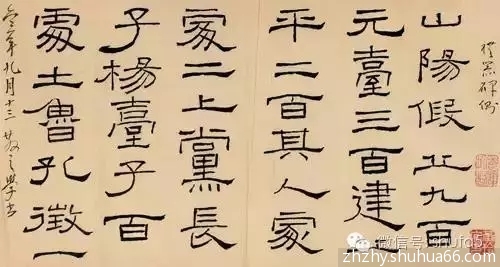 禮器碑側
山陽假丘九百
元臺三百建
平二百其人處
處二上黨長
子楊臺子百
處土魯孔徵一
年九月十三
微信号: shufa52
zhzhy.shuhua66.com